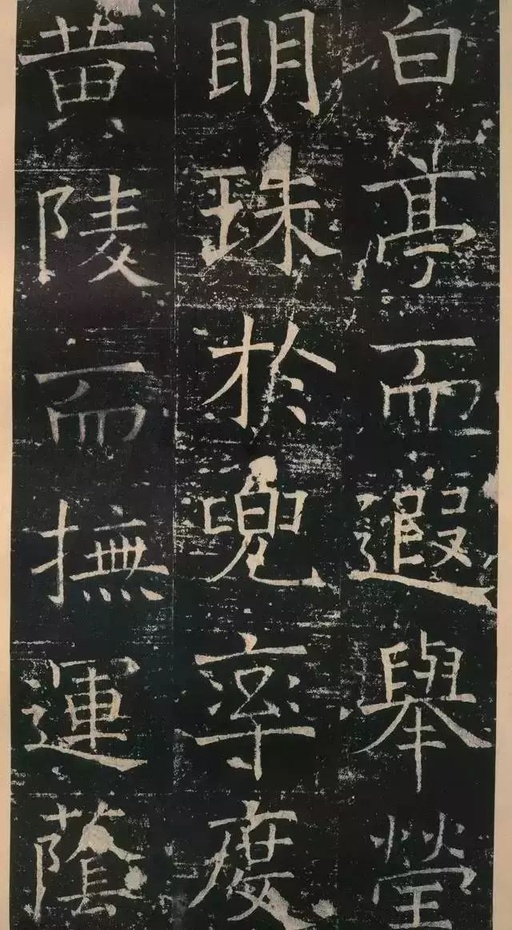 白亭而遐舉瑩
明珠於兜率度
黄陵而撫運蔭